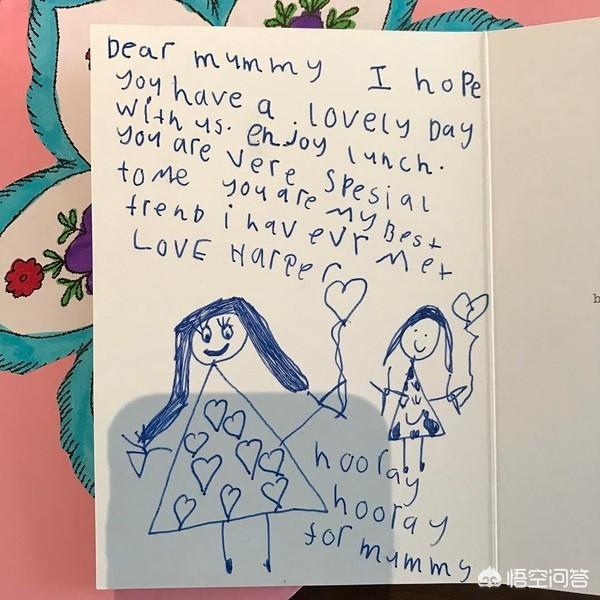 Dear mummy I hope
you have a lovely Day
with us. enjoy lunch.
you are vere spesial
to me you are my Best
frend i hav evr met
LOVE Harper
hooray
hooray
for mummy
h
悟空问答